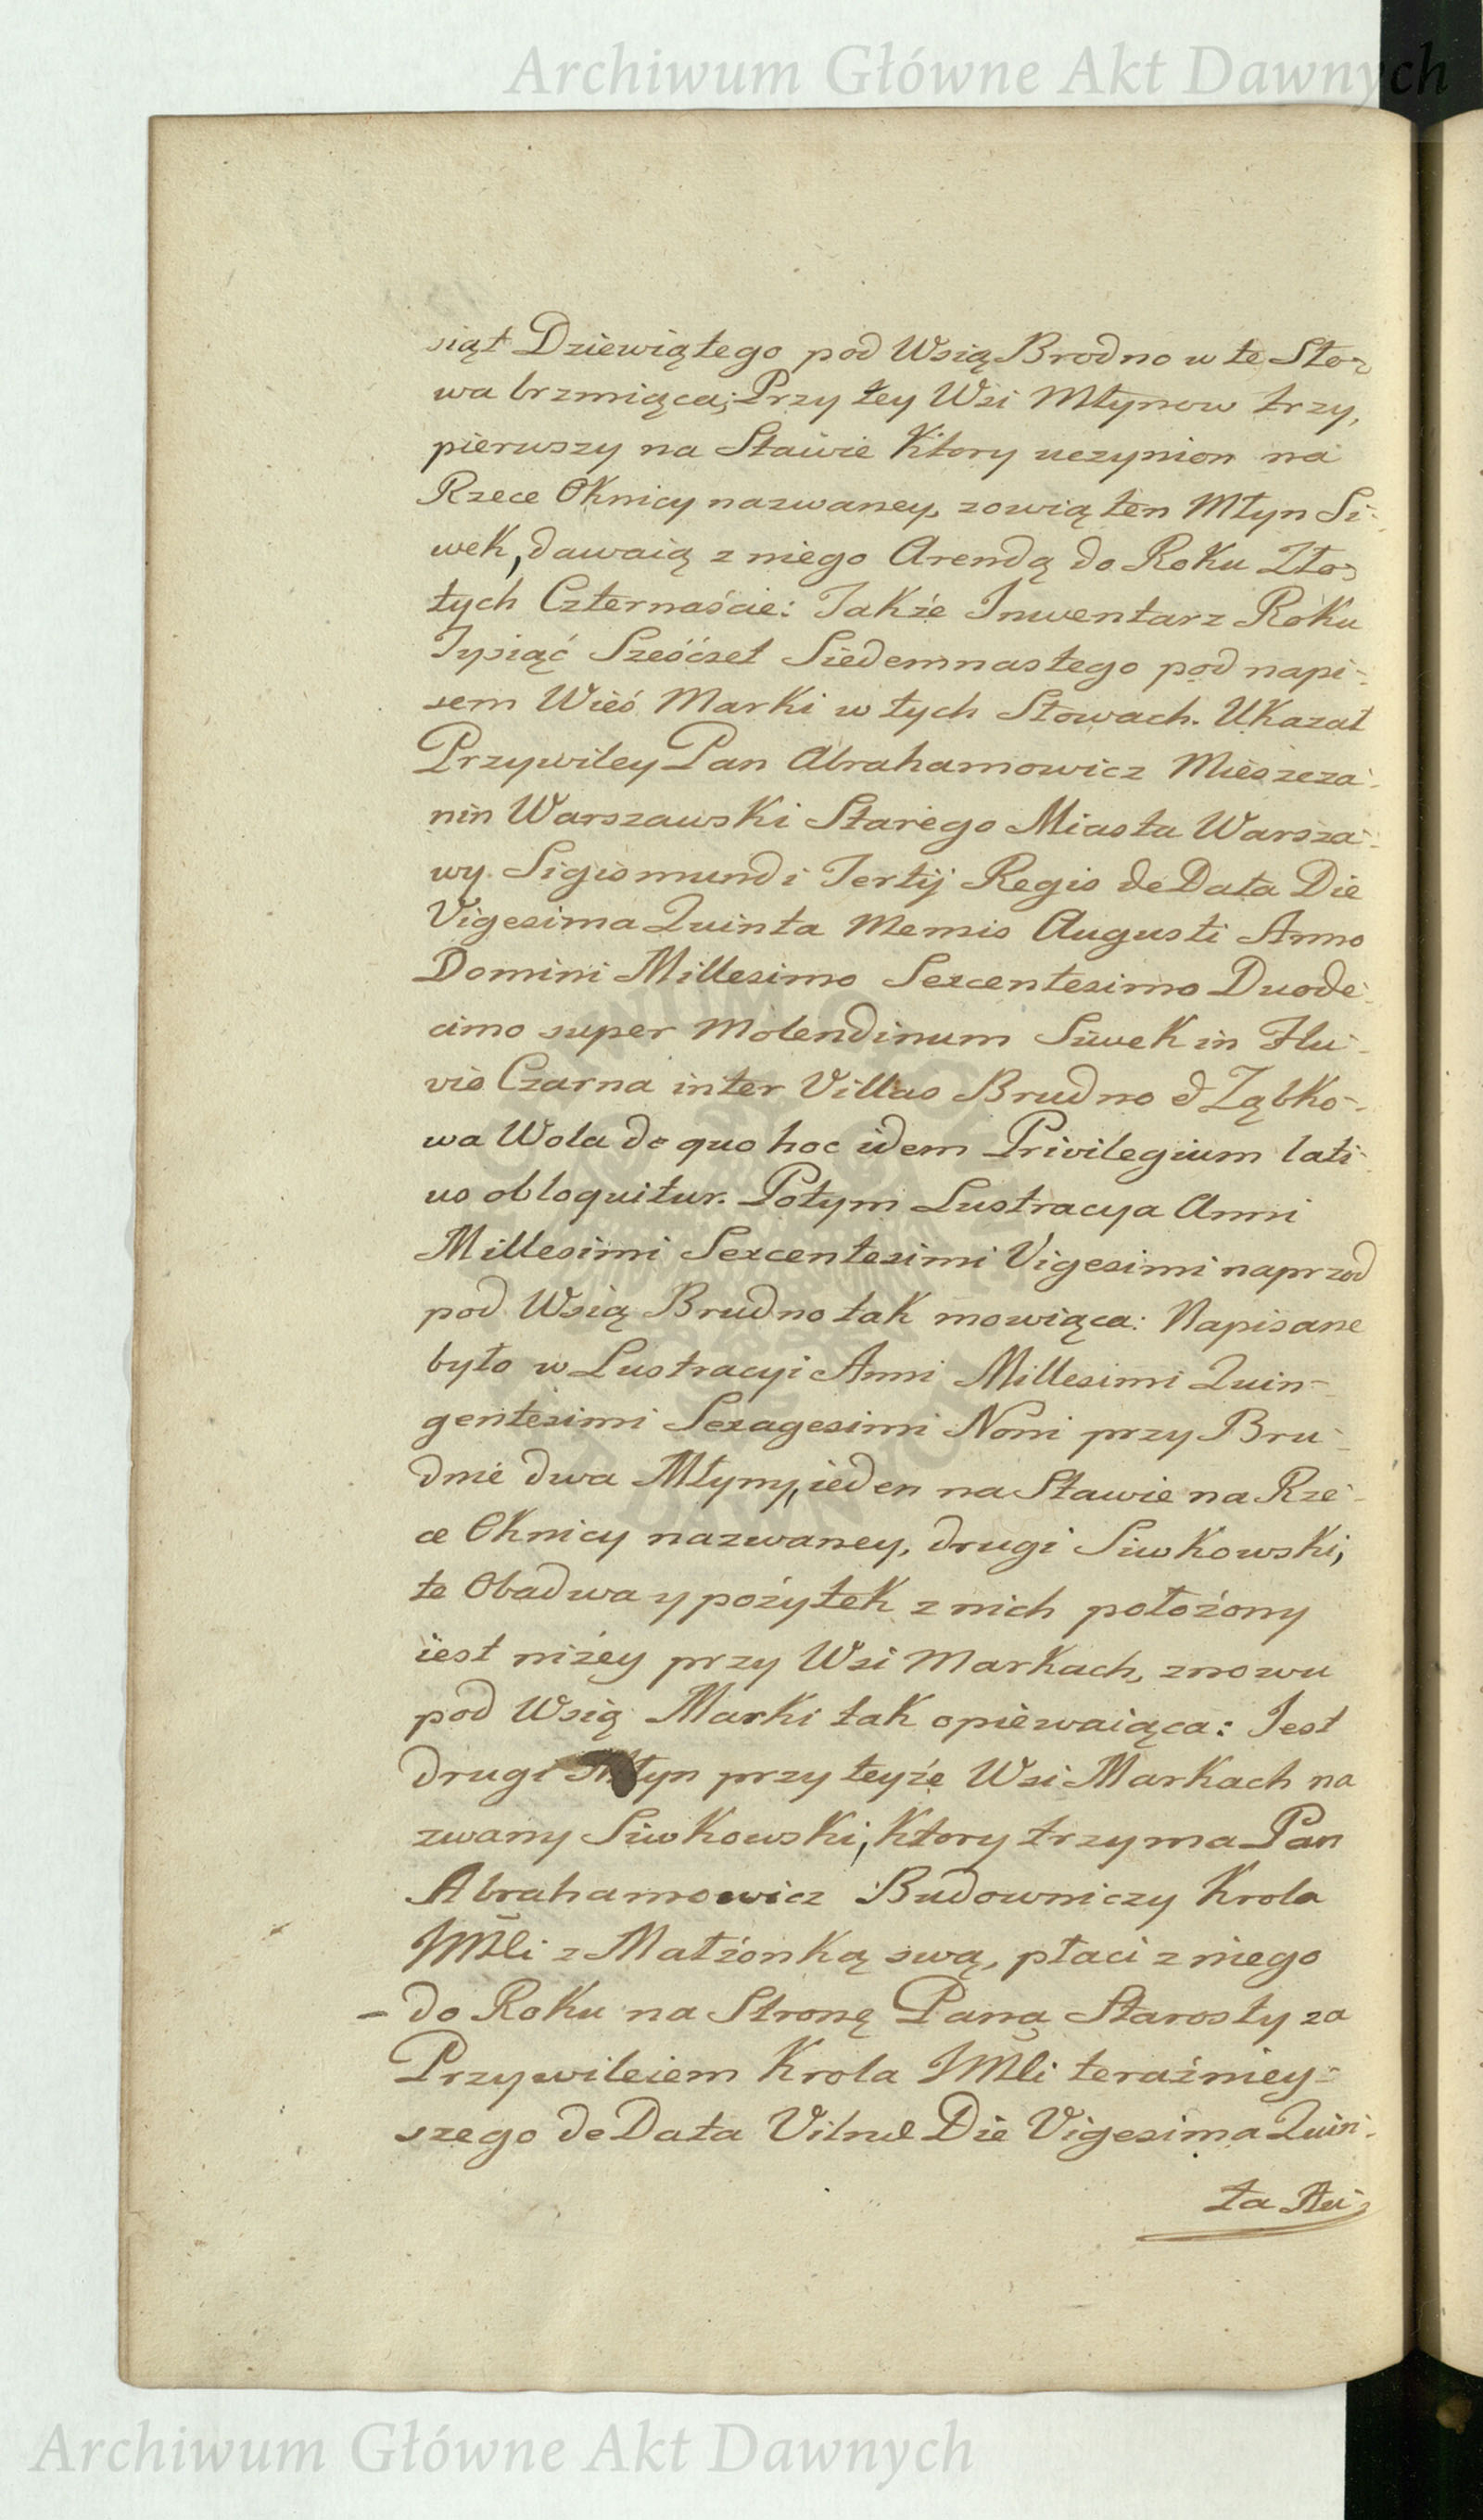 Archiwum Główne Akt Dawnych
siąt Dziewiątego pod Wsią Brodno w te Sło-
wa brzmiąca; Przy tey Wsi Młynow trzy,
pierwszy na Stawie Ktory uczynion na
Rzece Oknicy nazwaney, zowią ten Młyn Si-
wek, dawaią z niego Arendą do Roku Zło-
tych Czternaście: Także Inwentarz Roku
Tysiąć Sześćset Siedemnastego pod napi-
sem Wieś Marki w tych Słowach. Ukazał
Przywiley Pan Abrahamowicz Mieszcza-
nin Warszawski Starego Miasta Warsza-
wy. Sigismundi Tertij Regis de Data Die
Vigesima Quinta Mensis Augusti Anno
Domini Millesimo Sexcentesimo Duode-
cimo super Molendinum Siwek in Flu-
vio Czarna inter Villas Brudno & Ząbko-
wa Wola de quo hoc idem Privilegium lati-
us obloquitur. Potym Lustracya Anni
Millesimi Sexcentesimi Vigesimi naprzod
pod Wsią Brudno tak mowiąca: Napisane
było w Lustracyi Anni Millesimi Quin-
gentesimi Sexagesimi Noni przy Bru-
dnie dwa Młyny, ieden na Stawie na Rze-
ce Oknicy nazwaney, drugi Siwkowski,
te Obadwa y pożytek z nich położony
iest niżey przy Wsi Markach, znowu
pod Wsią Marki tak opiewaiąca: Jest
drugi Młyn przy teyże Wsi Markach na
zwany Siwkowski, Ktory trzyma Pan
Abrahamowicz Budowniczy Krola
JMśli z Małżonką swą, płaci z niego
- do Roku na Stronę Pana Starosty za
Przywileiem Krola JMśli teraźniey-
szego de Data Vilnæ Die Vigesima Quin-
ta Au-
Archiwum Główne Akt Dawnych